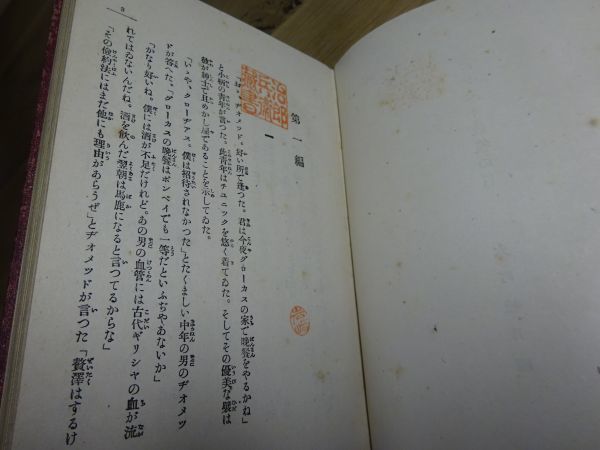 第一編
一
「やあ、ヂオメッド。好い所で逢つた。君は今夜グローカスの家で晩餐をやるかね」
と小柄の青年が言つた。此青年はチユニックを悠く着てゐた。そしてその優美な襞は
紳士で且めかし屋であることを示してゐた。
「いゝや、クローヂアス。僕は招待されなかつた」とたくましい中年の男のヂオメツ
ドが答へた。「グローカスの晩餐はポンペイでも一等だといふぢやあないか」
「かなり好いね。僕には酒が不足だけれど。あの男の血管には古代ギリシヤの血が流
れてはゐないんだね。酒を飲んだ翌朝は馬鹿になると言つてるからな」
「その倹約法にはまだ他にも理由があらうぜ」とヂオメツドが言つた「贅澤はするけ
3
治郎兵衞藏書